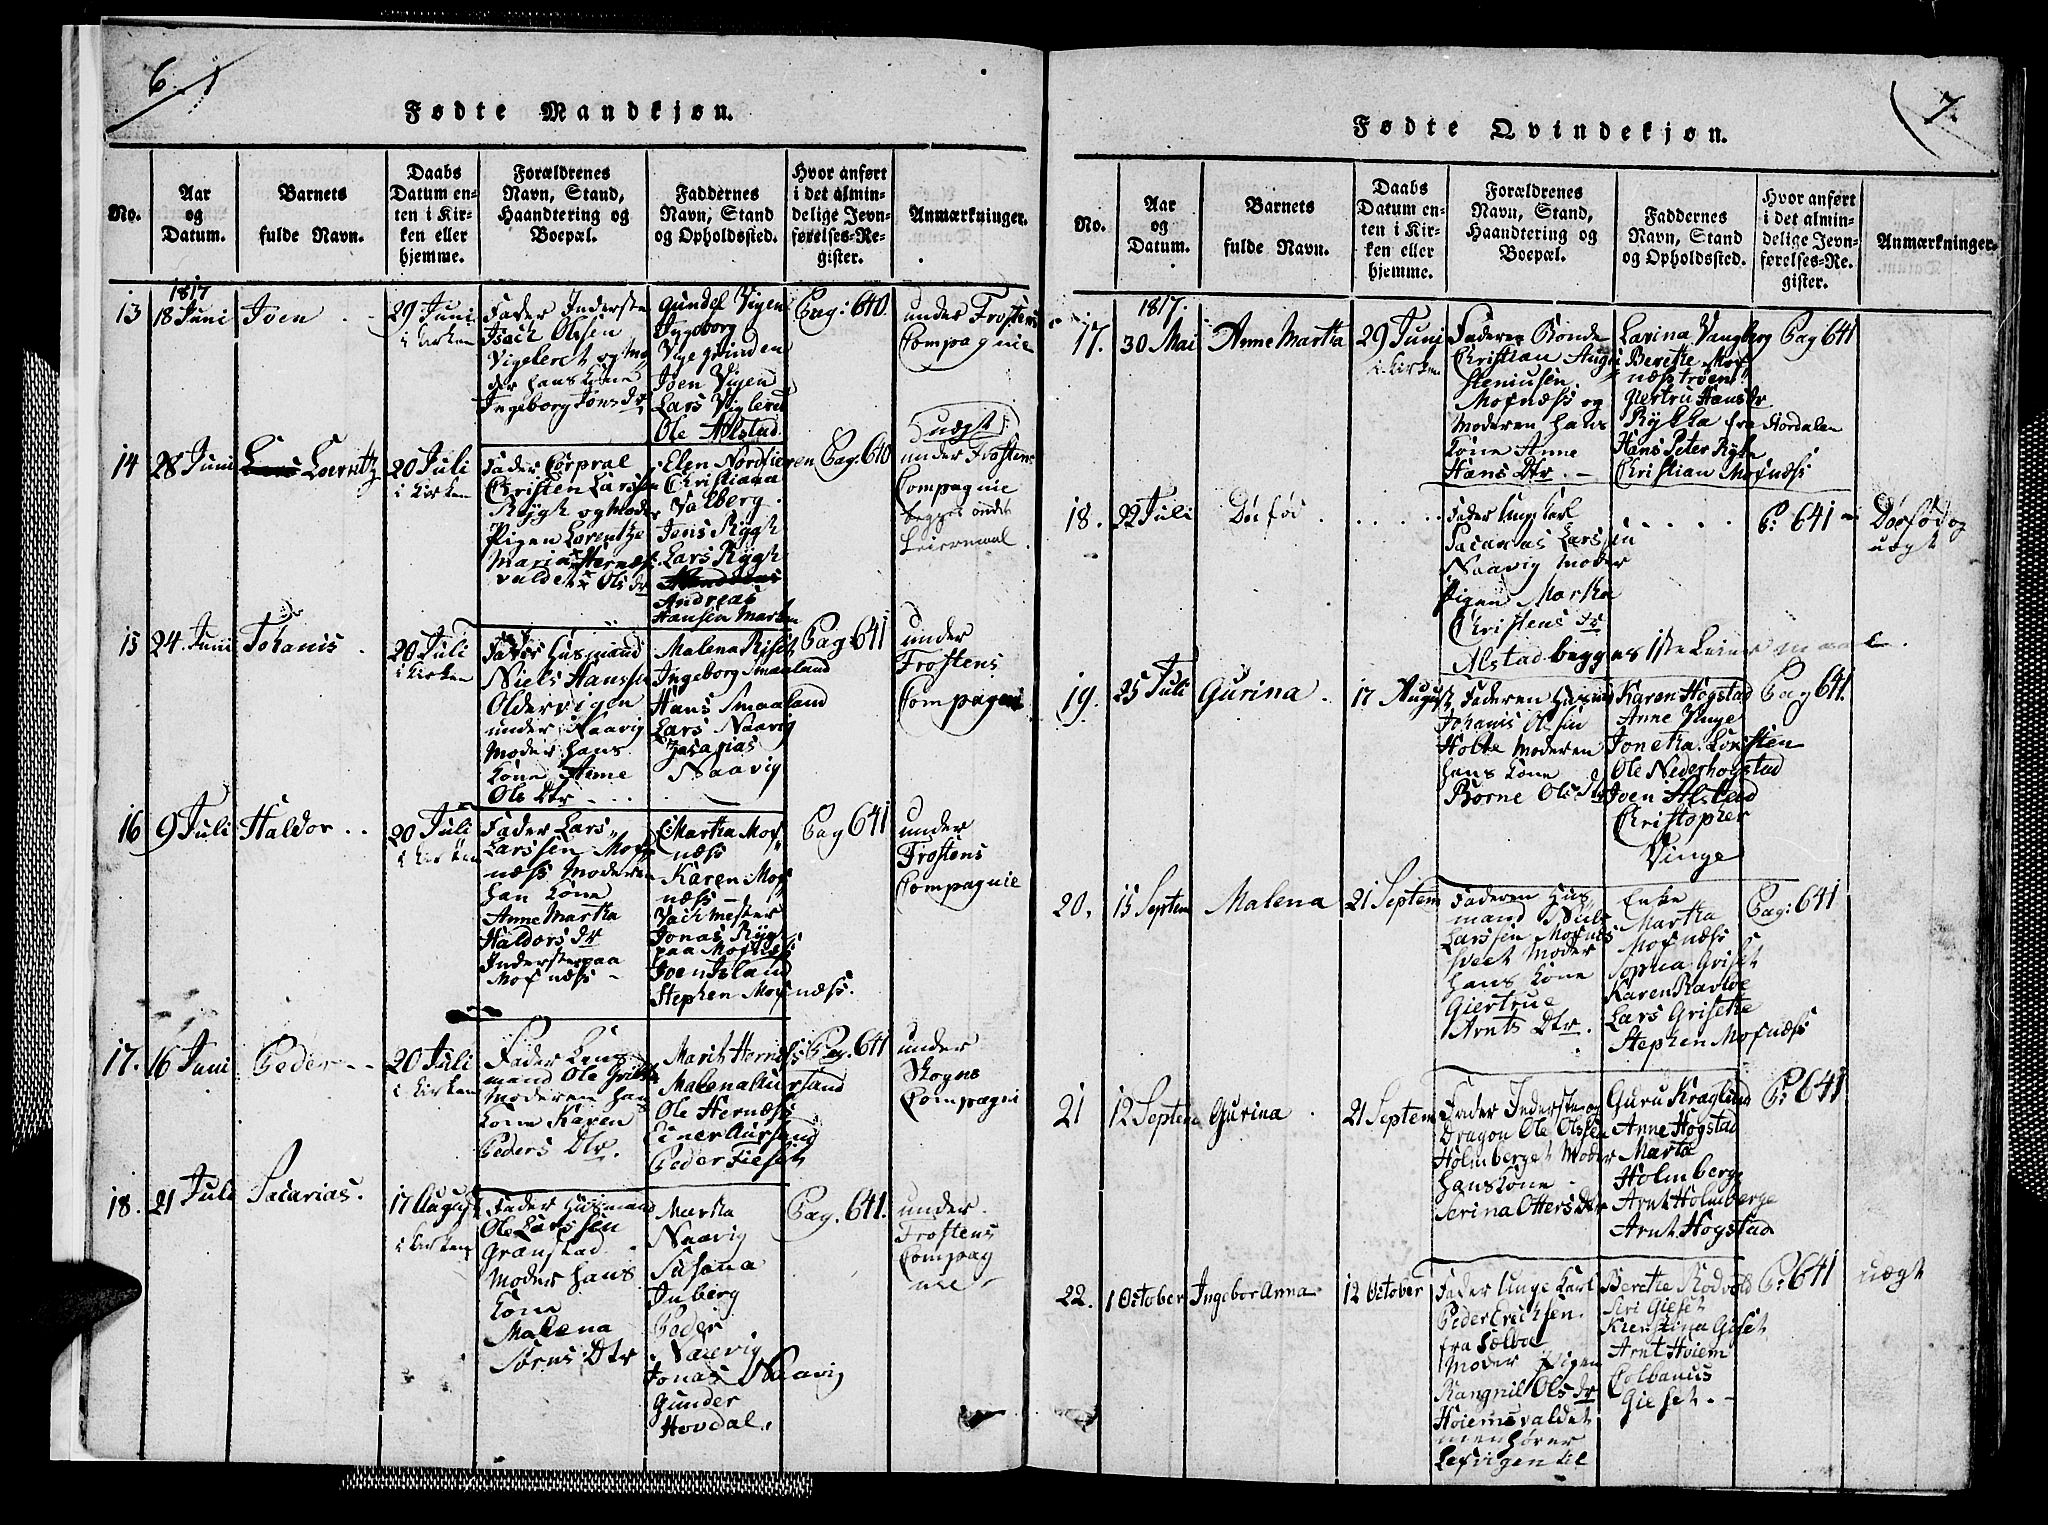 6
Fødte Mandkjøn.
No.
Aar
og
Datum.
Barnets
fulde Navn.
Daabs
Datum en-
ten i Kir-
ken eller
hjemme.
Forældrenes
Navn, Stand,
Haandtering og
Boepæl.
Faddernes
Navn, Stand
og Opholdssted.
Hvor anført
i det almin-
delige Jevn-
førelses-Re-
gister.
Anmærkninger.
13
1817
18 Juni
Joen
29 Juni
i Kirken
Fader Inderste
Isach Olsen
Vigeleret og Mo
der hans Kone
Ingeborg Jons Dr
Gundel Vigen
Ingeborg
Vigegrinden
Joen Vigen
Lars Vigleret
Ole Alstad
Pag: 640
under Frostens
Compagnie
14
28 Juni
Lorentz
20 Juli
i Kirken
Fader Corpral
Christen Larssen
Rygh og Moder
Pigen Lorentze
Maria Hernæss
valdet Ols dr
Elen Nordsieren
Christiana
Valberg
Jens Rygh
Lars Rygh
Andreas
Hansen Marken
Pag. 640
uægt
under Frostens
Compagnie
begges andet
Leiermaal
15
24 Juni
Johanis
20 Juli
i Kirken
Fader Husmand
Niels Hanssen
Oldervigen
under Naavig
Moder hans
Kone Anne
Ols Dtr
Malena Riset
Ingeborg Smaaland
Hans Smaaland
Lars Naavig
Zacarias
Naavig
Pag. 641
under
Frostens
Compagnie
16
9 Juli
Haldor
20 Juli
i Kirken
Fader Lars
Larssen Mof
næss Moderen
han Kone
Anne Martha
Haldors dr
Inderste paa
Mofnæss
Martha Mof
næss
Karen Mof
næss
Vachmester
Jonas Rygh
paa Mofnæss
Joen Island
Stephen Mofnæss.
Pag 641
under
Frostens
Compagnie
17.
16 Juni
Peder
20 Juli
i Kirken
Fader Lens
mand Ole
Moderen hans
Kone Karen
Peders Dtr.
Marit Hernæss
Malena Aursand
Ole Hernæss
Einer Aursand
Peder Fieset
Pag. 641
under
Skogns
Compagni
18.
21 Juli
Sacarias.
17 August
i Kirken
Fader Husmand
Ole Larssen
Grønstad
Moder hans
Kone
Malena
Sørens Dtr
Martha
Naavig
Susana
Inberg
Peder
Naavig
Jonas Naavig
Gunder
Hovdal.
Pag. 641.
under
Frostens
Compag
nie
7.
Fødte Qvindekjøn.
No.
Aar
og
Datum.
Barnets
fulde Navn.
Daabs
Datum en-
ten i Kir-
ken eller
hjemme.
Forældrenes
Navn, Stand,
Haandtering og
Boepæl.
Faddernes
Navn, Stand
og Opholdssted.
Hvor anført
i det almin-
delige Jevn-
førelses-Re-
gister.
Anmærkninger.
17.
1817.
30 Mai
Anne Martha
29 Juni
i Kirken
Faderen Bonde
Christian Augu
steniusen
Mofnæss og
Moderen hans
Kone Anne
Hans Dtr.
Lavina Vangberg
Berethe Mof
næss trøen
Giertru Hansdr
Rykka fra Stordalen
Hans Peter Rykk
Christian Mofnæss
Pag 641
18.
22 Juli
Døfød
Fader Unge Karl
Sacarias Larssen
Naavig Moder
Pigen Martha
Christens dr
Alstad begges 1ste Leiermaal.
P: 641
Dødfød og
uægt
19.
25 Juli
Gurina
17 August
Faderen Husmand
Johanis Olsen
Holte Moderen
hans Kone
Børne Ols Dtr
Karen Hogstad
Anne Vinge
Jonetha Lorsten
Ole Nederhogstad
Joen Alstad
Christopher
Vinge
Pag 641.
20.
15 Septem
Malena
21 Septem
Faderen Hus
mand Niels
Larssen Mofnæs
sveet Moder
hans Kone
Giertrue
Arnts Dtr.
Enke
Martha
Mofnæss
Sophia Griset
Karen Ravloe
Lars Grisethe
Stephen Mofnæss
Pag: 641
21
12 Septem
Gurina
21 Septem
Fader Inderste og
Dragon Ole Olssen
Holmberget Moder
hans Kone
Serina Otters Dtr
Guru Kraglund
Anne Hogstad
Marta
Holmberge
Arnt Holmberge
Arnt Hogstad
P: 641
22.
1 October
Ingebor Anna
12 October
Fader Unge Karl
Peder Erichsen
fra Sælboe
Moder Pigen
Rangnil Ols dr
Høiemsvaldet
men hører
Lefvigen til
Berethe Rodvold
Siri Gieset
Krenstona Gieset
Arnt Hoiem
Colbanus
Gieset.
P: 641
uægt